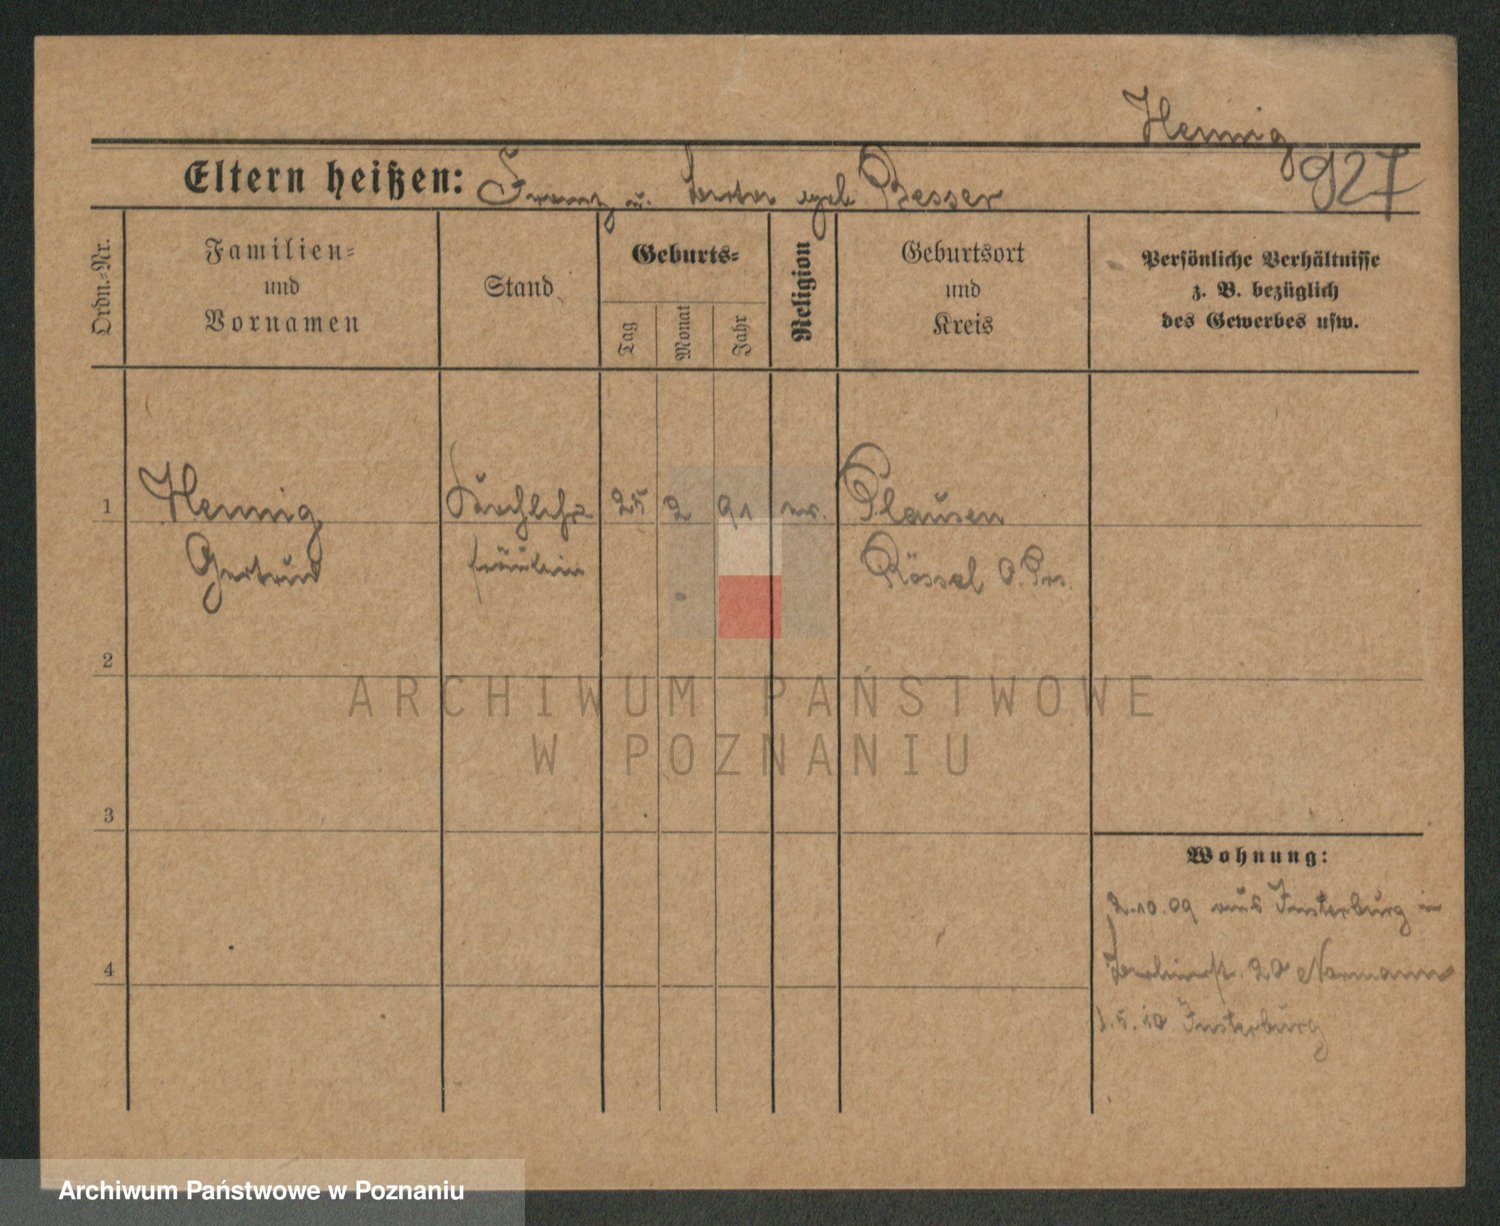 Hennig
927
Eltern heißen: Franz u. geb Besser
Ordn.=Nr.
Familien=
und
Vornamen
Stand
Geburts=
Tag
Monat
Jahr
Religion
Geburtsort
und
Kreis
Persönliche Verhältnisse
z. B. bezüglich
des Gewerbes usw.
1 Hennig 25 2 91 Plausen
Gertrud fräulein Rössel O. Prs.
2
ARCHIWUM PAŃSTWOWE
W POZNANIU
3
Wohnung:
2.10.09 aus Insterburg in
4
20 Normann
1.5.10 Insterburg
Archiwum Państwowe w Poznaniu